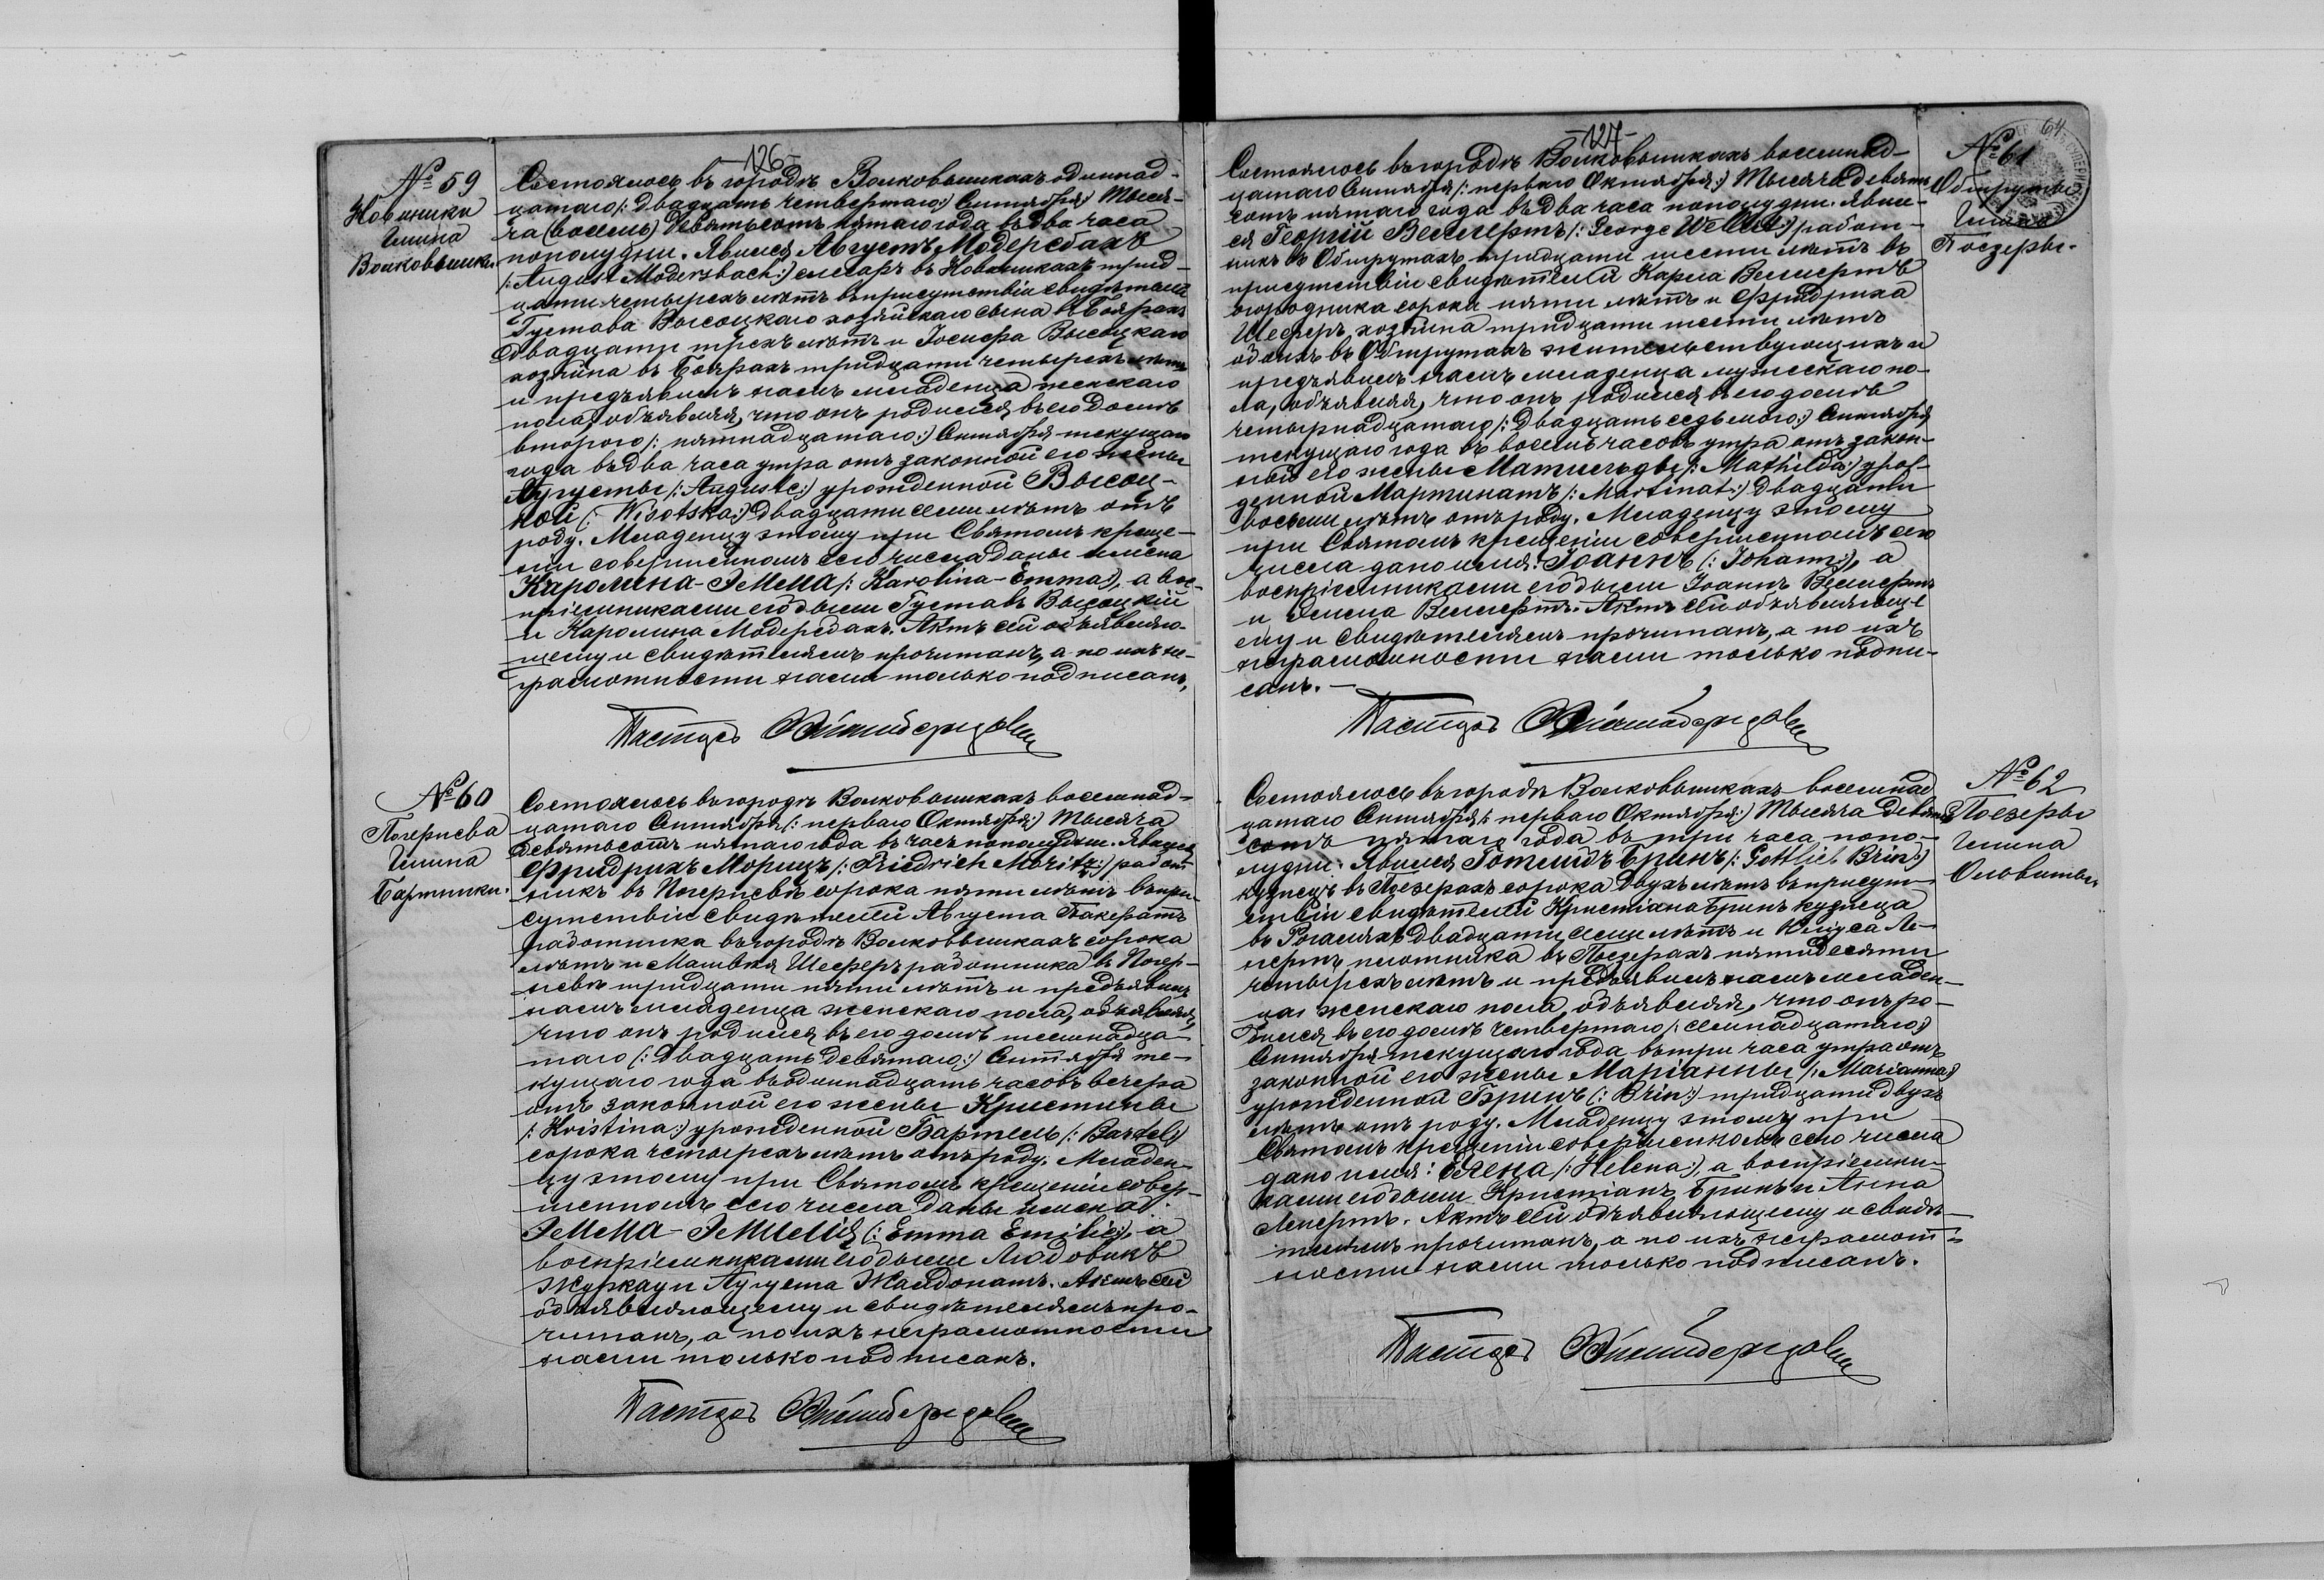 -126-
№ 59
Новиники
Гмина
Волковышки.
Состоялось въ городѣ Волковышкахъ одиннад-
цатаго /: двадцать четвертаго :/ Сентября Тыся-
ча (восемь) Девятьсотъ пятаго года въ два часа
пополудни. Явился Августъ Модерсбахъ
/: August Modersbach :/ столяръ въ Новиникахъ трид-
цати четырехъ лѣтъ въ присутствіи свидѣтелей
Густава Высоцкаго хозяйскаго сына въ Боярахъ
Двадцати трехъ лѣтъ и Іосифа Высоцкаго
хозяина въ Боярахъ тридцати четырехъ лѣтъ
и предъявилъ намъ младенца женскаго
пола, объявляя, что онъ родился въ его домѣ
второго /: пятнадцатаго :/ Сентября текущаго
года въ два часа утра отъ законной его жены
Августы /: Auguste :/ урожденной Высоц-
кой /: Wisotska :/ Двадцати семи лѣтъ отъ
роду. Младенцу этому при Святомъ креще-
ніи совершенномъ сего числа даны имена
Каролина-Эмма /: Karolina-Emma :/, а вос-
пріемниками его были Густавъ Высоцкій
и Каролина Модерсбахъ. Актъ сей объявляю-
щему и свидѣтелямъ прочитанъ, а по ихъ не-
грамотности нами только подписанъ,
Пасторъ
№ 60
Погернева
Гмина
Бартники.
Состоялось въ городѣ Волковышкахъ восемнад-
цатаго Сентября /: перваго Октября :/ Тысяча
Девятьсотъ пятаго года въ часъ пополудни. Явился
Фридрихъ Морицъ /: Friedrich Moritz :/ работ-
никъ въ Погерневѣ сорока пяти лѣтъ въ при-
сутствіи свидѣтелей Августа Бакератъ
работника въ городѣ Волковышкахъ сорока
лѣтъ и Матвѣя Шеферъ работника въ Погер-
невѣ тридцати пяти лѣтъ и предъявилъ
намъ младенца женскаго пола, объявляя,
что онъ родился въ его домѣ шестнадца-
таго /: Двадцать девятаго :/ Сентября те-
кущаго года въ одиннадцать часовъ вечера
отъ законной его жены Кристины
/: Kristina :/ урожденной Бартель /: Bartel :/
сорока четырехъ лѣтъ отъ роду. Младен-
цу этому при Святомъ крещеніи совер-
шенномъ сего числа даны имена:
Эмма-Эмилія /: Emma Emilie :/, а
воспріемниками его были Людовикъ
Журкау и Августа Жалдонатъ. Актъ сей
объявляющему и свидѣтелямъ про-
читанъ, а по ихъ неграмотности
нами только подписанъ.
Пасторъ
-127-
64
№ 61
Обшруты
Гмина
Поезеры.
Состоялось въ городѣ Волковышкахъ восемнад-
цатаго Сентября /: перваго Октября :/ Тысяча девять
сотъ пятаго года въ два часа пополудни. Явил-
ся Георгій Веллертъ /: George Wellert :/ работ-
никъ въ Обшрутахъ тридцати шести лѣтъ въ
присутствіи свидѣтелей Карла Веллертъ
огородника сорока пяти лѣтъ и Фридриха
Шеферъ, хозяина тридцати шести лѣтъ
обоихъ въ Обшрутахъ жительствующихъ и
предъявилъ намъ младенца мужескаго по-
ла, объявляя, что онъ родился въ его домѣ
четырнадцатаго /: Двадцать седьмого :/ Сентября
текущаго года въ восемь часовъ утра отъ закон-
ной его жены Матильды /: Mathilda :/ урож-
денной Мартинатъ /: Martinat :/ Двадцати
восьми лѣтъ отъ роду. Младенцу этому
при Святомъ крещеніи совершенномъ сего
числа дано имя: Іоаннъ /: Johann :/, а
воспріемниками его были Іоаннъ Веллертъ
и Эмма Веллертъ. Актъ сей объявляюще-
му и свидѣтелямъ прочитанъ, а по ихъ
неграмотности нами только подпи-
санъ.-
Пасторъ
№ 62
Поезеры
Гмина
Оловиты
Состоялось въ городѣ Волковышкахъ восемнад
цатаго Сентября /: перваго Октября :/ Тысяча девять
сотъ пятаго года въ три часа попо-
лудни. Явился Готлибъ Бринъ /: Gottlieb Brin :/
кузнецъ въ Поезерахъ сорока двухъ лѣтъ въ присут-
ствіи свидѣтелей Кристіана Бринъ кузнеца
въ Рогаляхъ двадцати семи лѣтъ и Юліуса Ле-
пертъ плотника въ Поезерахъ пятидесяти
четырехъ лѣтъ и предъявилъ намъ младен-
ца женскаго пола, объявляя, что онъ ро-
дился въ его домѣ четвертаго /: семнадцатаго :/
Сентября текущаго года въ три часа утра отъ
законной его жены Маріанны /: Marianna :/
урожденной Бринъ /: Brin :/ тридцати двухъ
лѣтъ отъ роду. Младенцу этому при
Святомъ крещеніи совершенномъ сего числа
дано имя: Елена /: Helena :/, а воспріемни-
ками его были Кристіанъ Бринъ и Анна
Лепертъ. Актъ сей объявляющему и свидѣ-
телямъ прочитанъ, а по ихъ неграмот-
ности нами только подписанъ.
Пасторъ